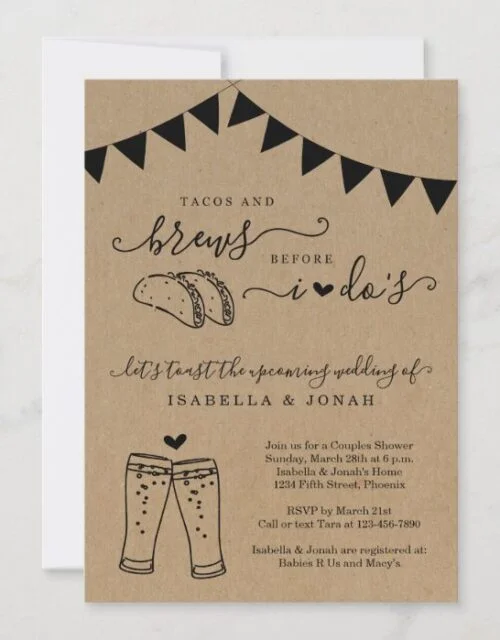 TACOS AND
brews
BEFORE
i do's
let's toast the upcoming wedding of
ISABELLA & JONAH
Join us for a Couples Shower
Sunday, March 28th at 6 p.m.
Isabella & Jonah's Home
1234 Fifth Street, Phoenix
RSVP by March 21st
Call or text Tara at 123-456-7890
Isabella & Jonah are registered at:
Babies R Us and Macy's.